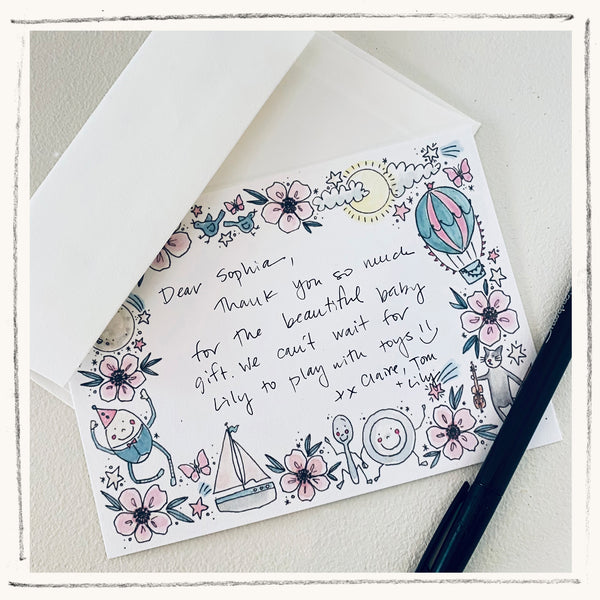 Dear Sophia,
Thank you so much
for the beautiful baby
gift. We can't wait for
Lily to play with toys!!
xx Claire, Tom
+ Lily